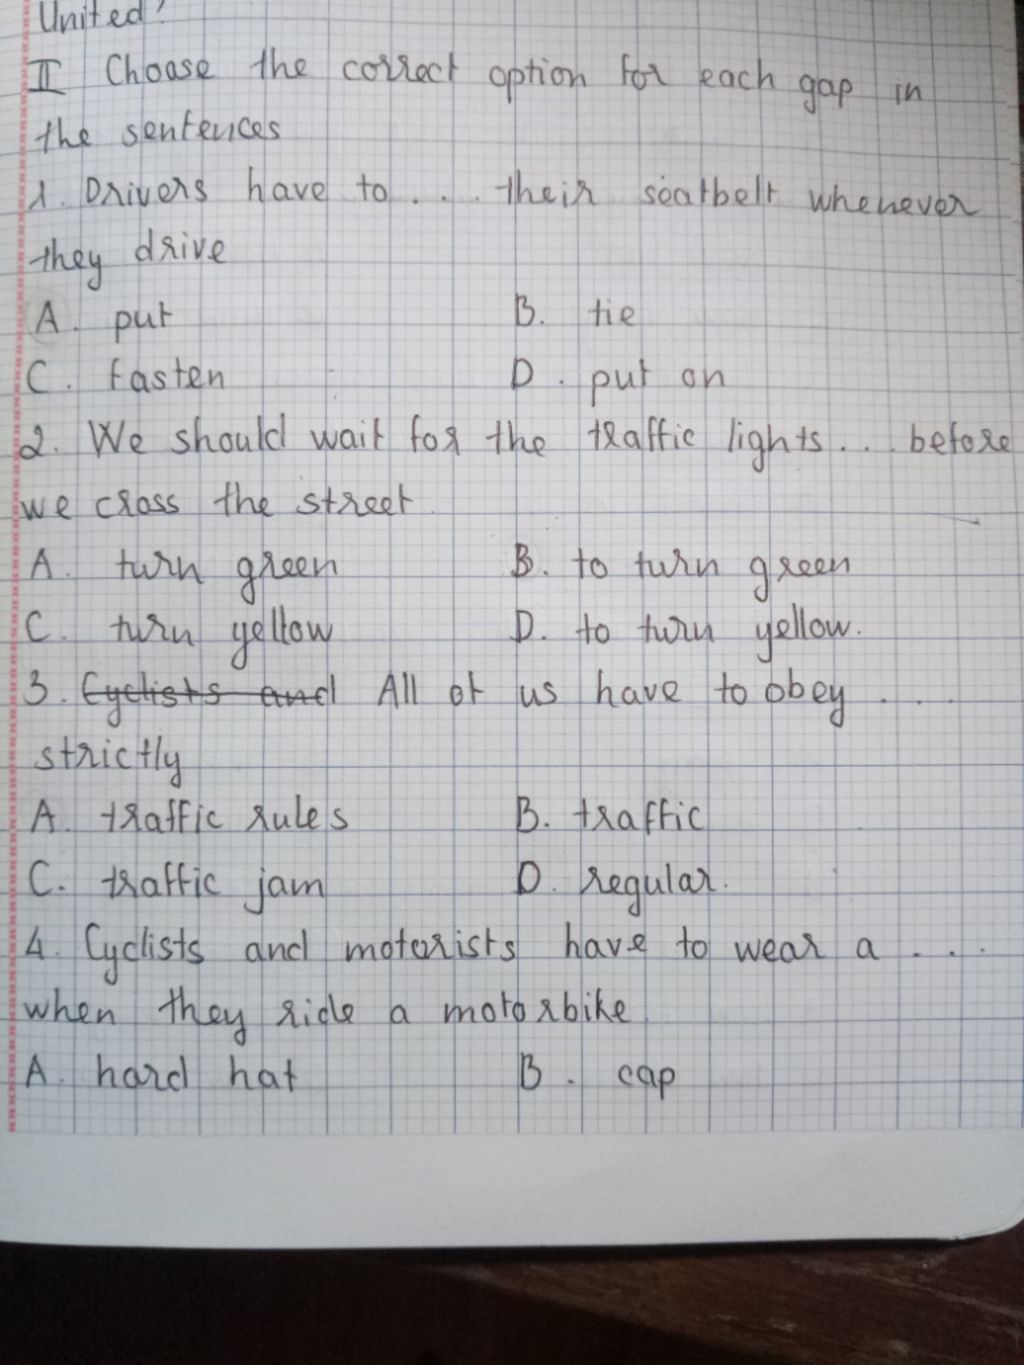 United?
II Choose the correct option for each gap in
the sentences
1. Drivers have to . . . . their seatbelt whenever
they drive
A. put B. tie
C. fasten D. put on
2. We should wait for the traffic lights . . . . before
we cross the street
A. turn green B. to turn green
C. turn yellow D. to turn yellow.
3. Cyclists and All of us have to obey . . . .
strictly
A. traffic rules B. traffic
C. traffic jam D. regular.
4. Cyclists and motorists have to wear a . . . .
when they ride a motorbike
A. hard hat B. cap